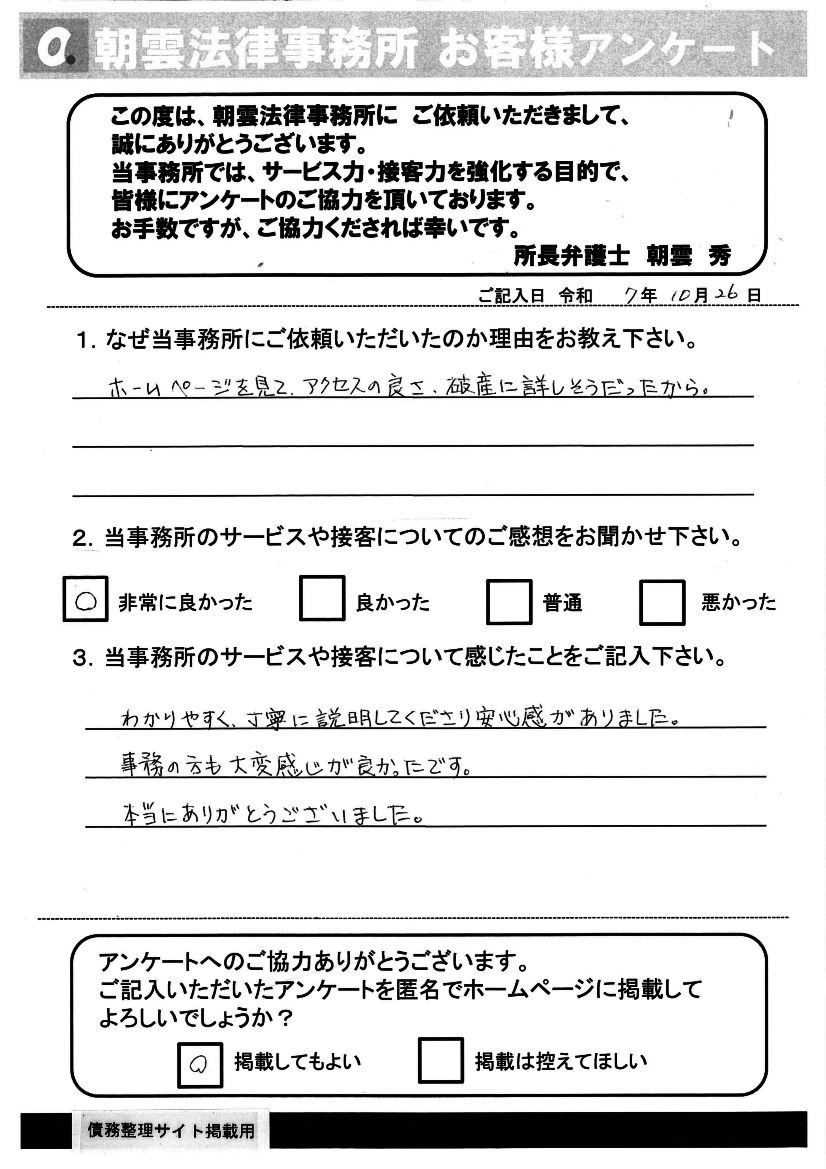 朝雲法律事務所 お客様アンケート
この度は、朝雲法律事務所に ご依頼いただきまして、
誠にありがとうございます。
当事務所では、サービス力・接客力を強化する目的で、
皆様にアンケートのご協力を頂いております。
お手数ですが、ご協力くだされば幸いです。
所長弁護士 朝雲 秀
ご記入日 令和 7年 10月26日
1. なぜ当事務所にご依頼いただいたのか理由をお教え下さい。
ホームページを見て、アクセスの良さ、破産に詳しそうだったから。
2. 当事務所のサービスや接客についてのご感想をお聞かせ下さい。
○ 非常に良かった 良かった 普通 悪かった
3. 当事務所のサービスや接客について感じたことをご記入下さい。
わかりやすく、丁寧に説明してくださり安心感がありました。
事務の方も大変感じが良かったです。
本当にありがとうございました。
アンケートへのご協力ありがとうございます。
ご記入いただいたアンケートを匿名でホームページに掲載して
よろしいでしょうか？
○ 掲載してもよい 掲載は控えてほしい
債務整理サイト掲載用